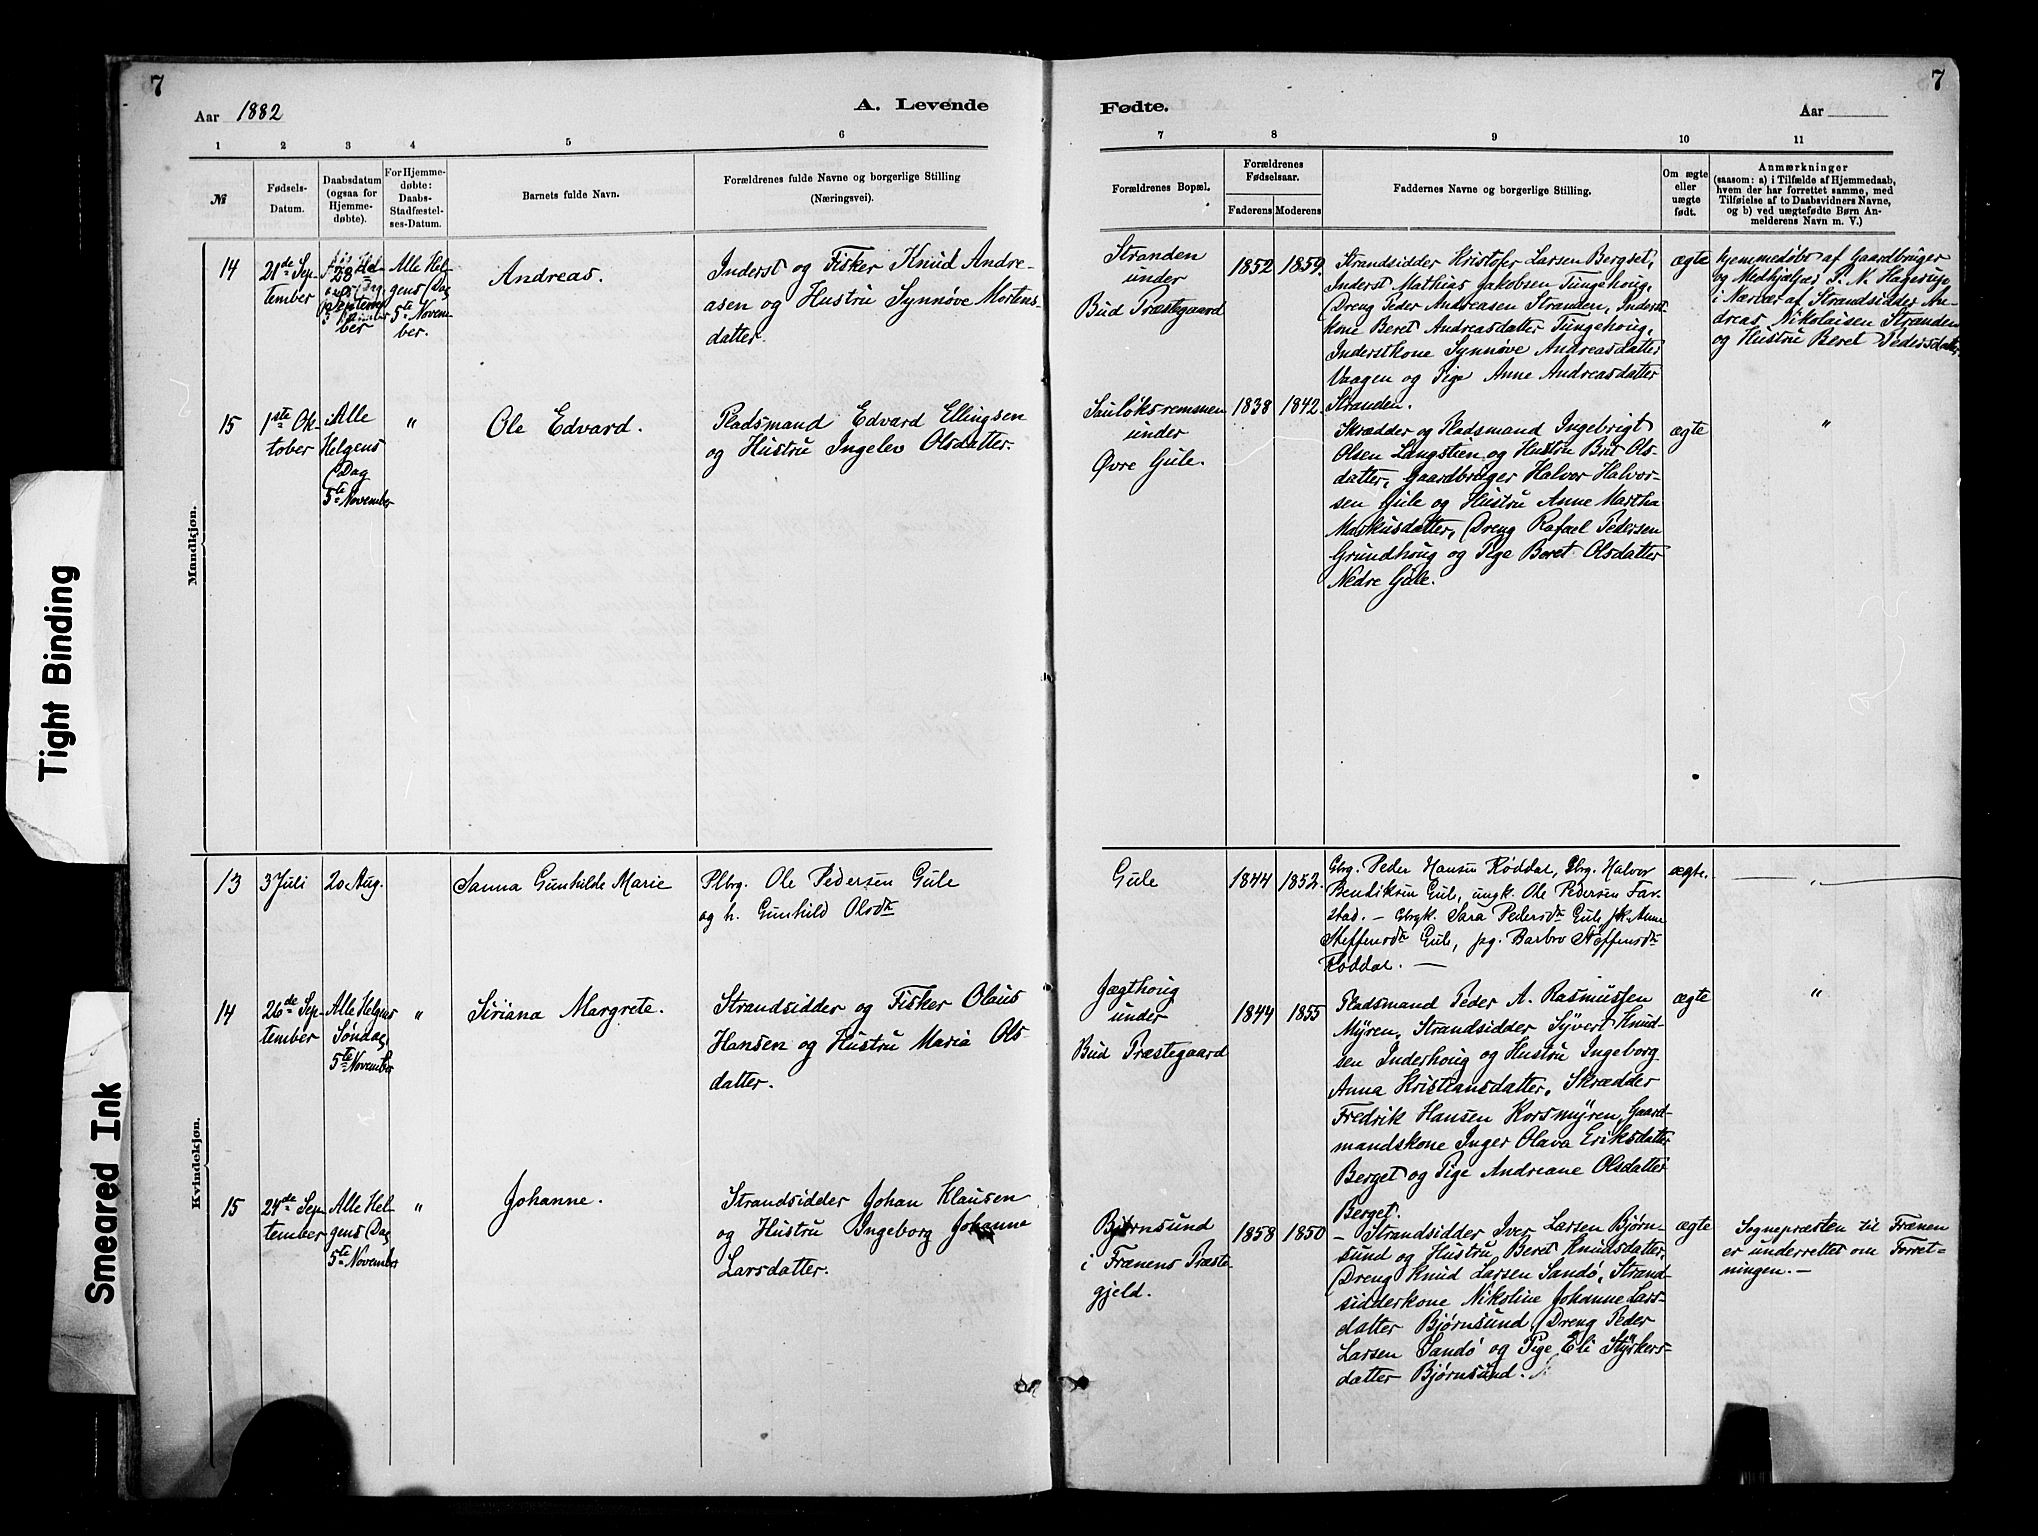 7
7
Aar 1882
A. Levende
Fødte.
Aar
1
2
3
4
5
6
7
8
9
10
11
№
Fødsels-
Datum.
Daabsdatum
(ogsaa for
Hjemme-
døbte).
For Hjemme-
døbte:
Daabs-
Stadfæstel-
ses-Datum.
Barnets fulde Navn.
Forældrenes fulde Navne og borgerlige Stilling
(Næringsvei).
Forældrenes Bopæl.
Forældrenes
Fødselsaar.
Faderens
Moderens
Faddernes Navne og borgerlige Stilling.
Om ægte
eller
uægte
født.
Anmærkninger
(saasom: a) i Tilfælde af Hjemmedaab,
hvem der har forrettet samme, med
Tilføielse af to Daabsvidners Navne,
og b) ved uægtefødte Børn An-
melderens Navn m. V.)
Mandkjøn.
14
21de Sep-
tember
28
Septem-
ber
Alle Hel-
gens Dag
5te Novem-
ber.
Andreas.
Inderst og Fisker Knud Andre-
asen og Hustru Synnøve Mortens-
datter.
Stranden
under
Bud Præstegaard
1852
1859.
Strandsidder Kristofer Larsen Bergset,
Inderst Mathias Jakobsen Tungehoug,
Dreng Peder Andreasen Stranden, Inderst-
kone Beret Andreasdatter Tungehoug,
Inderstkone Synnøve Andreasdatter
Vaagen og Pige Anne Andreasdatter
Stranden.
ægte
hjemmedøbt af Gaardbruger
og Medhjælper P. N. Hagerup
i Nærvær af Strandsidder An-
dreas Nikolaisen Stranden
og Hustru Beret Pedersdatter.
15
1ste Ok-
tober
Alle
Helgens
Dag
5te November
"
Ole Edvard.
Pladsmand Edvard Ellingsen
og Hustru Ingelev Olsdatter.
Sauløksremmen
under
Øvre Gule.
1838
1842.
Skrædder og Pladsmand Ingebrigt
Olsen Langstien og Hustru Brit Ols-
datter, Gaardbruger Halvor Halvor-
sen Gule og Hustru Anne Martha
Markusdatter, Dreng Rafael Pedersen
Grundhoug og Pige Beret Olsdatter
Nedre Gule.
ægte
"
Kvindekjøn.
13
3 Juli
20 Aug.
Sanna Gunhilde Marie
Plbrg. Ole Pedersen Gule
og h. Gunhild Olsdt
Gule
1844
1852.
Gbrg. Peder Hansen Røddal, Gbrg. Halvor
Bendiksen Gule, ungk. Ole Pedersen Far-
stad. – Gbrgk. Sara Pedersdt Gule, fk. Anne
Steffensdt Gule, pg. Barbro Steffensdt
Røddal. —
ægte.
— " —
14
26de Sep-
tember
Alle Helgens
Søndag
5te November
"
Siriana Margrete.
Strandsidder og Fisker Olaus
Hansen og Hustru Maria Ols-
datter.
Jægthoug
under
Bud Præstegaard
1844
1855
Pladsmand Peder A. Rasmussen
Myren, Strandsidder Syvert Knud-
sen Inderhoug og Hustru Ingeborg
Anna Kristiansdatter, Skrædder
Fredrik Hansen Korsmyren, Gaard-
mandskone Inger Olava Eriksdatter
Berget og Pige Andreane Olsdatter
Berget.
ægte
"
15
24de Sep-
tember
Alle Hel-
gens Dag
5te November
"
Johanne.
Strandsidder Johan Klausen
og Hustru Ingeborg Johanne
Larsdatter.
Bjørnsund
i Frænens Præste-
gjeld.
1858
1850
– Strandsidder Iver Larsen Bjørn-
sund og Hustru Beret Knudsdatter,
Dreng Knud Larsen Sandø, Strand-
sidderkone Nikoline Johanne Lars-
datter Bjørnsund, Dreng Peder
Larsen Sandø og Pige Eli Styrkers-
datter Bjørnsund.
ægte
Sognepræsten til Frænen
er underrettet om Forret-
ningen. –
Tight Binding
Smeared Ink